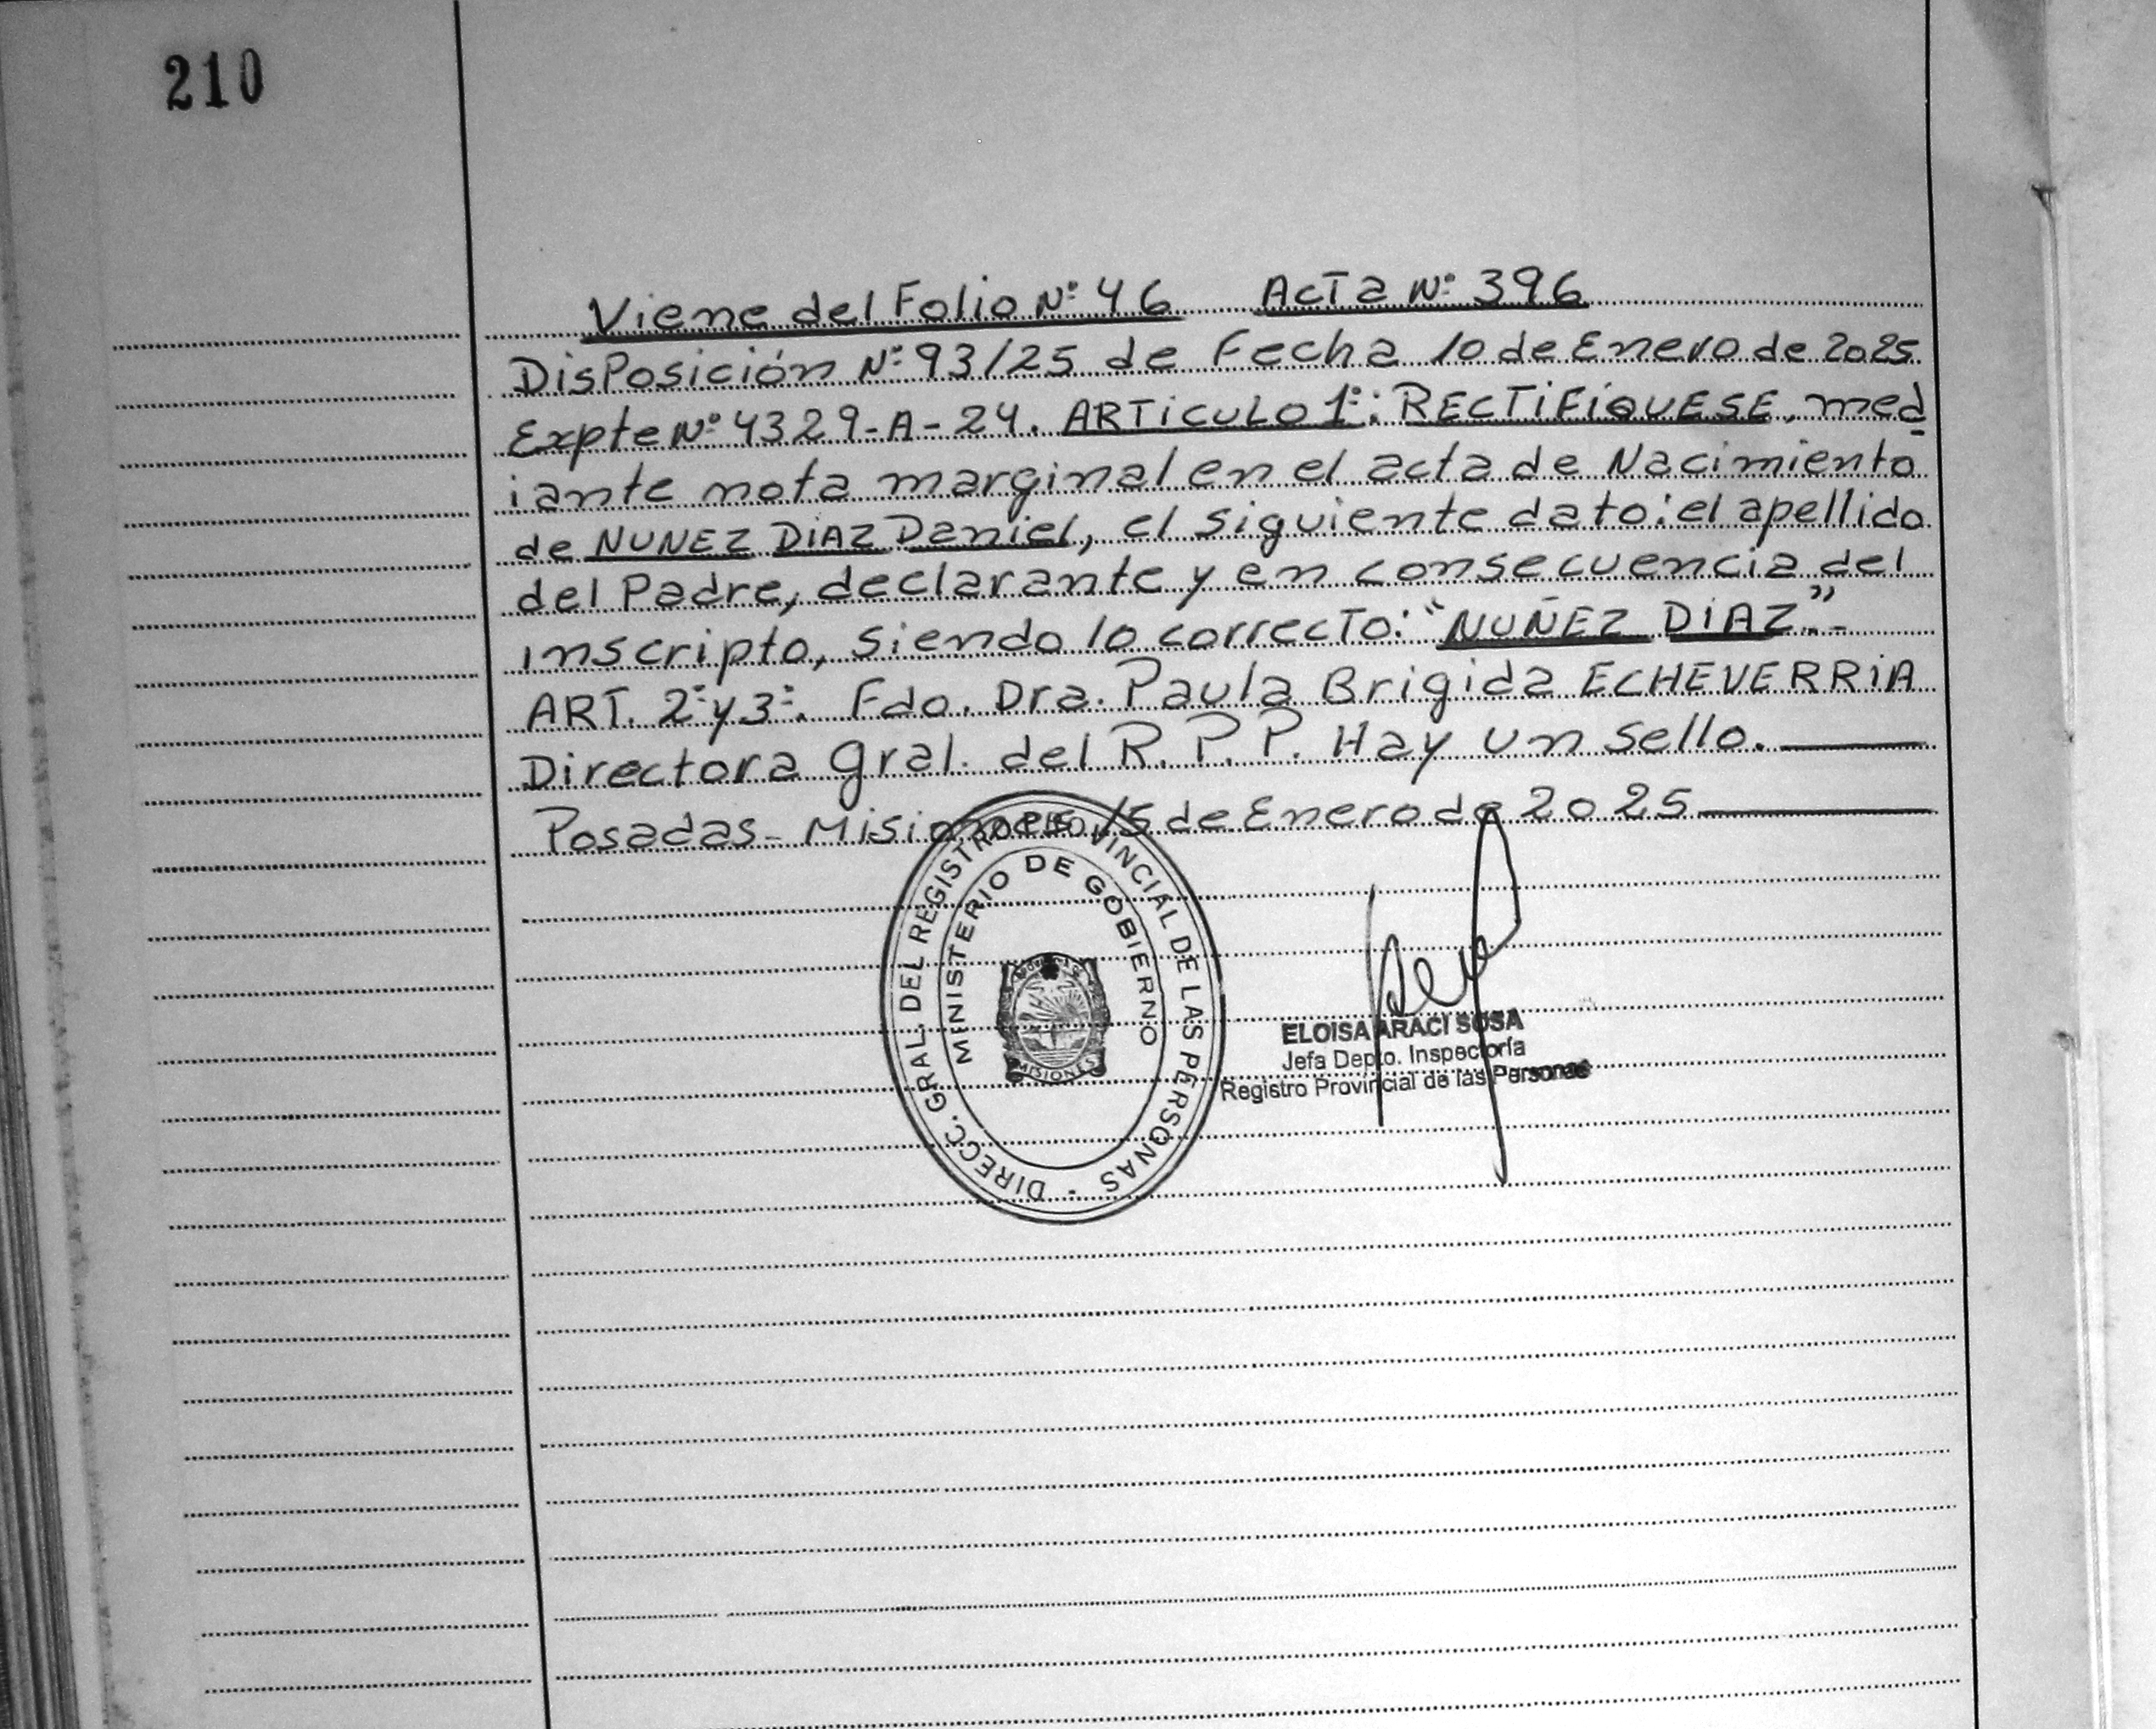 210
Viene del Folio N° 46 Acta N° 396
Disposición N° 93/25 de Fecha 10 de Enero de 2025
Expte N° 4329-A-24. ARTICULO 1°: RECTIFIQUESE, med
iante nota marginal en el acta de Nacimiento
de NUNEZ DIAZ Daniel, el siguiente dato: el apellido
del Padre, declarante y en consecuencia del
inscripto, siendo lo correcto: "NUÑEZ DIAZ".-
ART. 2° y 3°. Fdo. Dra. Paula Brigida ECHEVERRIA
Directora gral. del R. P. P. Hay un sello.
Posadas - Misiones, 15 de Enero de 2025
DIRECC. GRAL. DEL REGISTRO PROVINCIAL DE LAS PERSONAS -
MINISTERIO DE GOBIERNO
MISIONES
ELOISA ARACI SOSA
Jefa Depto. Inspectoría
Registro Provincial de las Personas